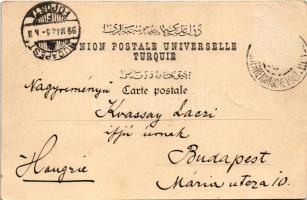 UNION POSTALE UNIVERSELLE
TURQUIE
Carte postale
Nagyreményű
Kvassay Laczi
ifjú úrnak
Hongrie
Budapest
Mária utcza 10.